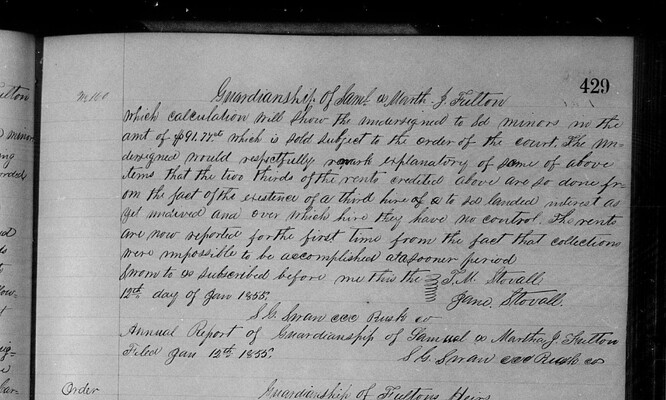 429
Guardianship of Saml & Marth. J. Fulton
which calculation will show the undersigned to sd minors in the
amt of $91.77 which is sold subject to the order of the court. The un-
dersigned would respectfully remark explanatory of some of above
items that the two thirds of the rents credited above are so done fr-
om the fact of the existence of a third hire of a to sd landed interest as
yet undived and over which hire they have no control. The rents
are now reported for the first time from the fact that collections
were impossible to be accomplished at a sooner period
Sworn to & subscribed before me this the T. M. Stovall
12th day of Jan 1855. Jane Stovall.
S. G. Swan ccc Rusk co
Annual Report of Guardianship of Samuel & Martha J. Fulton
Filed Jan 12th 1855. S. G. Swan ccc Rusk co
Order
Guardianship of Fultons Heirs